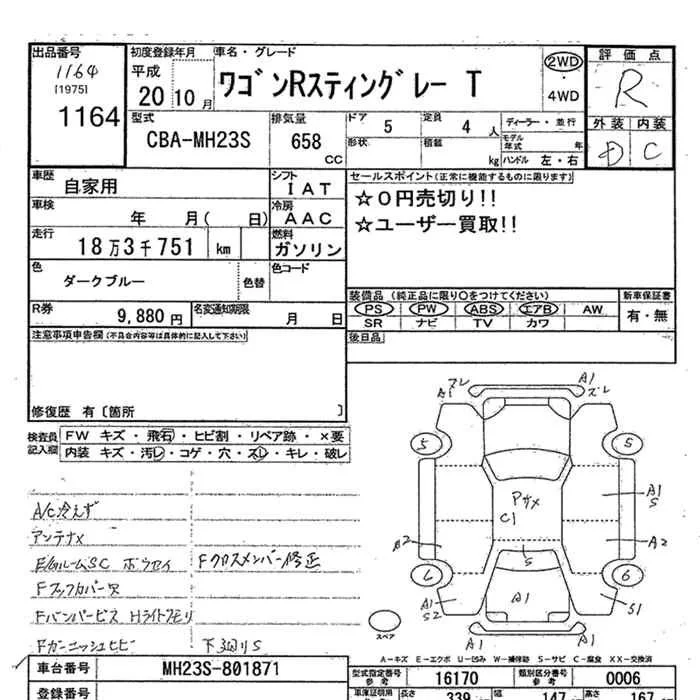 出品番号
1164
[1975]
1164
初度登録年月
平成
20 10月
車名・グレード
ワゴンRスティングレー T
2WD
・
4WD
評価点
R
外装 内装
D C
型式
CBA-MH23S
排気量
658
CC
ドア
5
定員
4 人
形状
積載
kg
ディーラー・並行
モデル年式 年
ハンドル 左・右
車歴
自家用
シフト
IAT
車検
年 月( 日)
冷房
AAC
走行
18万3千751 km
燃料
ガソリン
色
ダークブルー
色替
色コード
R券
9,880 円
名変通知期限
月 日
セールスポイント(正常に機能するものに限ります)
☆0円売切り!!
☆ユーザー買取!!
装備品 (純正品に限り○をつけてください)
PS PW ABS エアB AW
SR ナビ TV カワ
新車保証書
有・無
後日品
注意事項申告欄(不具合内容等は具体的に記入して下さい)
修復歴 有〔箇所 〕
検査員
記入欄
FW キズ・飛石・ヒビ割・リペア跡・×要
内装 キズ・汚レ・コゲ・穴・スレ・キレ・破レ
A/C冷えず
アンテナ×
E/GルームSC ボウセイ
Fクロスメンバー修正
Fフックカバー欠
Fバンパービス Hライトクモリ
Fガーニッシュヒビ
下廻りS
A1 ズレ
A1 ズレ
5
5
Pサメ
C1
A1
S
A2
A2
S
6
6
A1
S2
A1
S1
A1
A1
スペア
A−キズ E−エクボ U−凹み W−補修跡 S−サビ C−腐食 XX−交換済
車台番号
MH23S-801871
登録番号
型式指定番号
参考
16170
類別区分番号
参考
0006
車庫証明用
長さ
339
幅
147
高さ
167